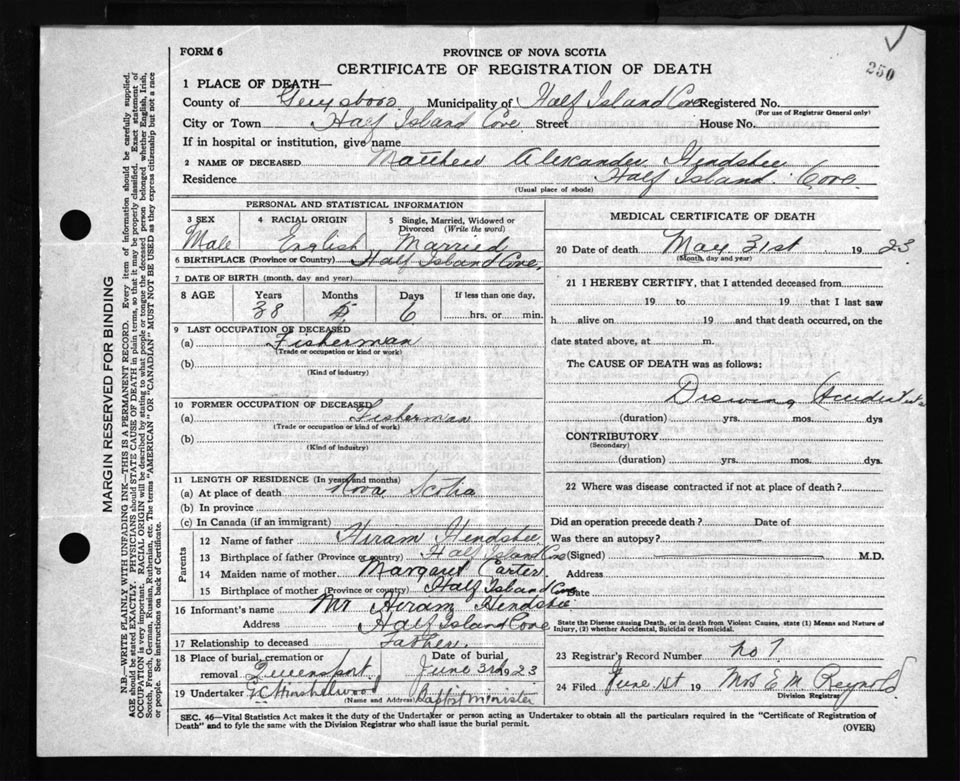 250
FORM 6
PROVINCE OF NOVA SCOTIA
CERTIFICATE OF REGISTRATION OF DEATH
1 PLACE OF DEATH—
County of Municipality of Half Island Cove Registered No.
(For use of Registrar General only)
City or Town Half Island Cove Street House No.
If in hospital or institution, give name
2 NAME OF DECEASED Matthew Alexander Hendsbee
Residence Half Island Cove.
(Usual place of abode)
PERSONAL AND STATISTICAL INFORMATION
3 SEX 4 RACIAL ORIGIN 5 Single, Married, Widowed or Divorced (Write the word)
Male English Married
6 BIRTHPLACE (Province or Country) Half Island Cove.
7 DATE OF BIRTH (month, day and year)
8 AGE Years Months Days If less than one day,
38 5 6 hrs. or min.
9 LAST OCCUPATION OF DECEASED
(a) Fisherman
(Trade or occupation or kind or work)
(b)
(Kind of industry)
10 FORMER OCCUPATION OF DECEASED
(a) Fisherman
(Trade or occupation or kind of work)
(b)
(Kind of industry)
11 LENGTH OF RESIDENCE (In years and months)
(a) At place of death Nova Scotia
(b) In province
(c) In Canada (if an immigrant)
Parents
12 Name of father Hiram Hendsbee
13 Birthplace of father (Province or country) Half Island Cove
14 Maiden name of mother Margaret Carter
15 Birthplace of mother (Province or country) Half Island Cove
16 Informant's name Mr Hiram Hendsbee
Address Half Island Cove
17 Relationship to deceased Father.
18 Place of burial, cremation or removal Queensport Date of burial June 3rd 1923
19 Undertaker Baptist minister
(Name and Address)
MEDICAL CERTIFICATE OF DEATH
20 Date of death May 31st 1923.
(Month, day and year)
21 I HEREBY CERTIFY, that I attended deceased from
19 to 19 that I last saw
h alive on 19 and that death occurred, on the
date stated above, at m.
The CAUSE OF DEATH was as follows:
(duration) yrs. mos. dys
CONTRIBUTORY
(Secondary)
(duration) yrs. mos. dys.
22 Where was disease contracted if not at place of death?
Did an operation precede death? Date of
Was there an autopsy?
(Signed) M.D.
Address
Date
State the Disease causing Death, or in death from Violent Causes, state (1) Means and Nature of
Injury, (2) whether Accidental, Suicidal or Homicidal.
23 Registrar's Record Number no 7
24 Filed June 1st 19 Mrs E M Reynolds
Division Registrar
SEC. 46—Vital Statistics Act makes it the duty of the Undertaker or person acting as Undertaker to obtain all the particulars required in the "Certificate of Registration of
Death" and to fyle the same with the Division Registrar who shall issue the burial permit.
(OVER)
MARGIN RESERVED FOR BINDING
N.B.—WRITE PLAINLY WITH UNFADING INK—THIS IS A PERMANENT RECORD. Every item of information should be carefully supplied.
AGE should be stated EXACTLY. PHYSICIANS should STATE CAUSE OF DEATH in plain terms, so that it may be properly classified. Exact statement of
OCCUPATION is very important. RACIAL ORIGIN will be described by stating to what people or tongue the deceased person belonged whether English, Irish,
Scotch, French, German, Russian, Ruthenian, etc. The terms "AMERICAN" OR "CANADIAN" MUST NOT BE USED as they express citizenship but not a race
or people. See instructions on back of Certificate.